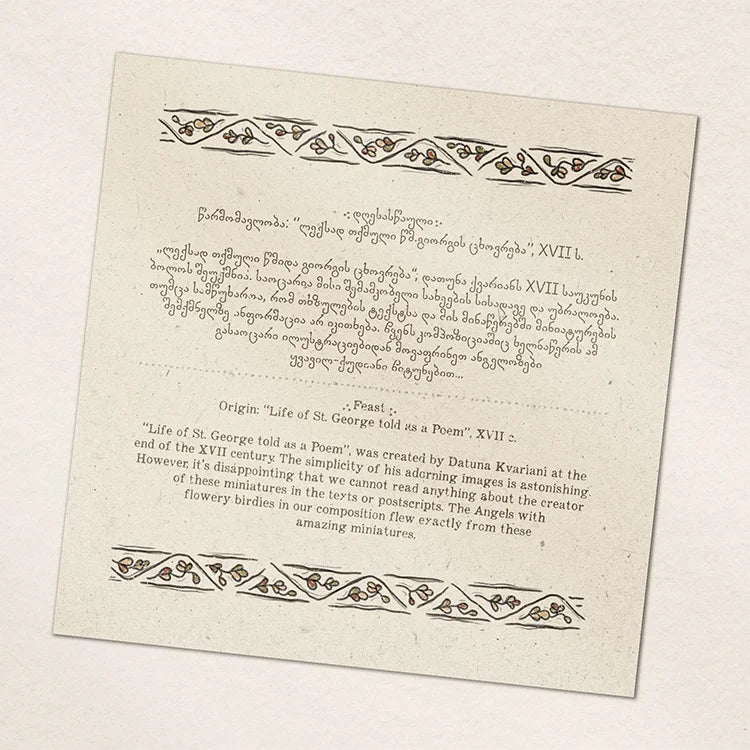 ·: დღესასწაული :·
წარმომავლობა: “ლექსად თქმული წმ.გიორგის ცხოვრება”, XVII ს.
„ლექსად თქმული წმიდა გიორგის ცხოვრება“; დათუნა ქვარიანს XVII საუკუნის
ბოლოს შეუქმნია. საოცარია მისი შემამკობელი სახეების სისადავე და უბრალოება.
თუმცა სამწუხაროა, რომ თხზულების ტექსტსა და მის მინაწერებში მინიატურების
შემქმნელზე ინფორმაცია არ იკითხება. ჩვენს კომპოზიციაშიც ხელნაწერის ამ
გასაოცარი ილუსტრაციებიდან მოვაფრინეთ ანგელოზები
ყვავილ-ქუდიანი ჩიტუნებით...
.:. Feast .:.
Origin: “Life of St. George told as a Poem”, XVII c.
“Life of St. George told as a Poem”, was created by Datuna Kvariani at the
end of the XVII century. The simplicity of his adorning images is astonishing.
However, it's disappointing that we cannot read anything about the creator
of these miniatures in the texts or postscripts. The Angels with
flowery birdies in our composition flew exactly from these
amazing miniatures.